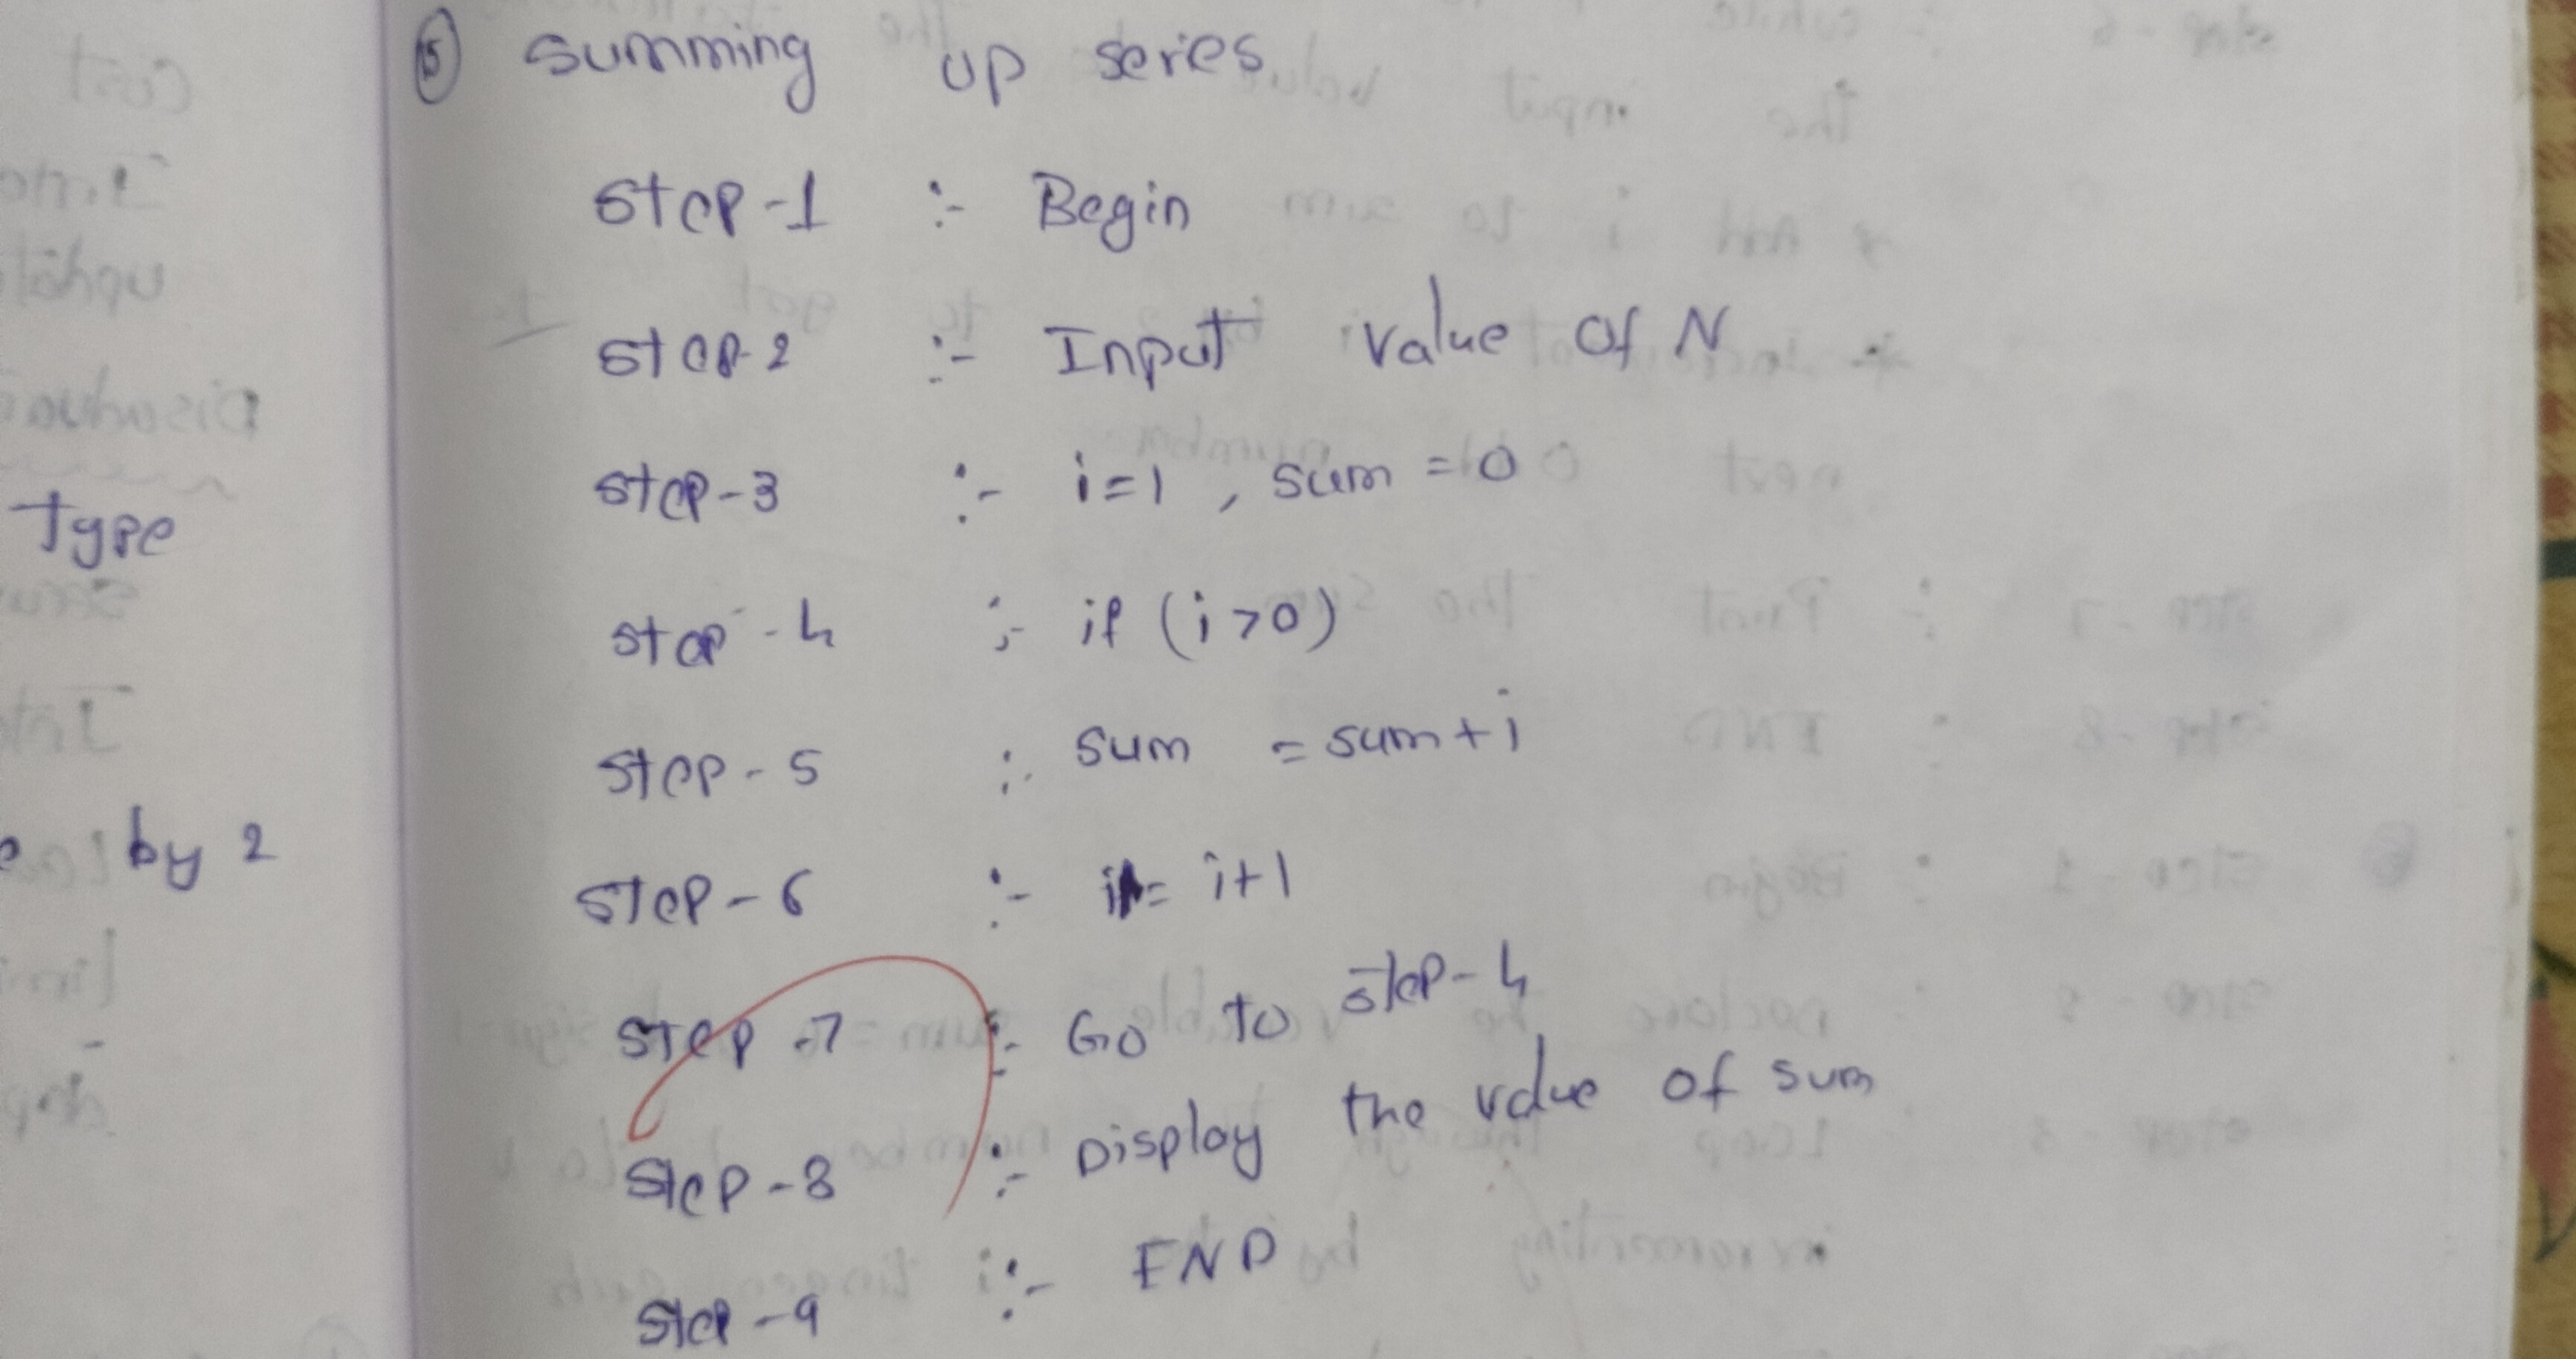 ⑤ summing up series
Step-1 :- Begin
Step-2 :- Input value of N
Step-3 :- i=1, sum=0
Step-4 :- if (i>0)
Step-5 :- sum = sum+i
Step-6 :- i= i+1
Step-7 :- Go to step-4
Step-8 :- Display the value of sum
Step-9 :- END
Type
by 2